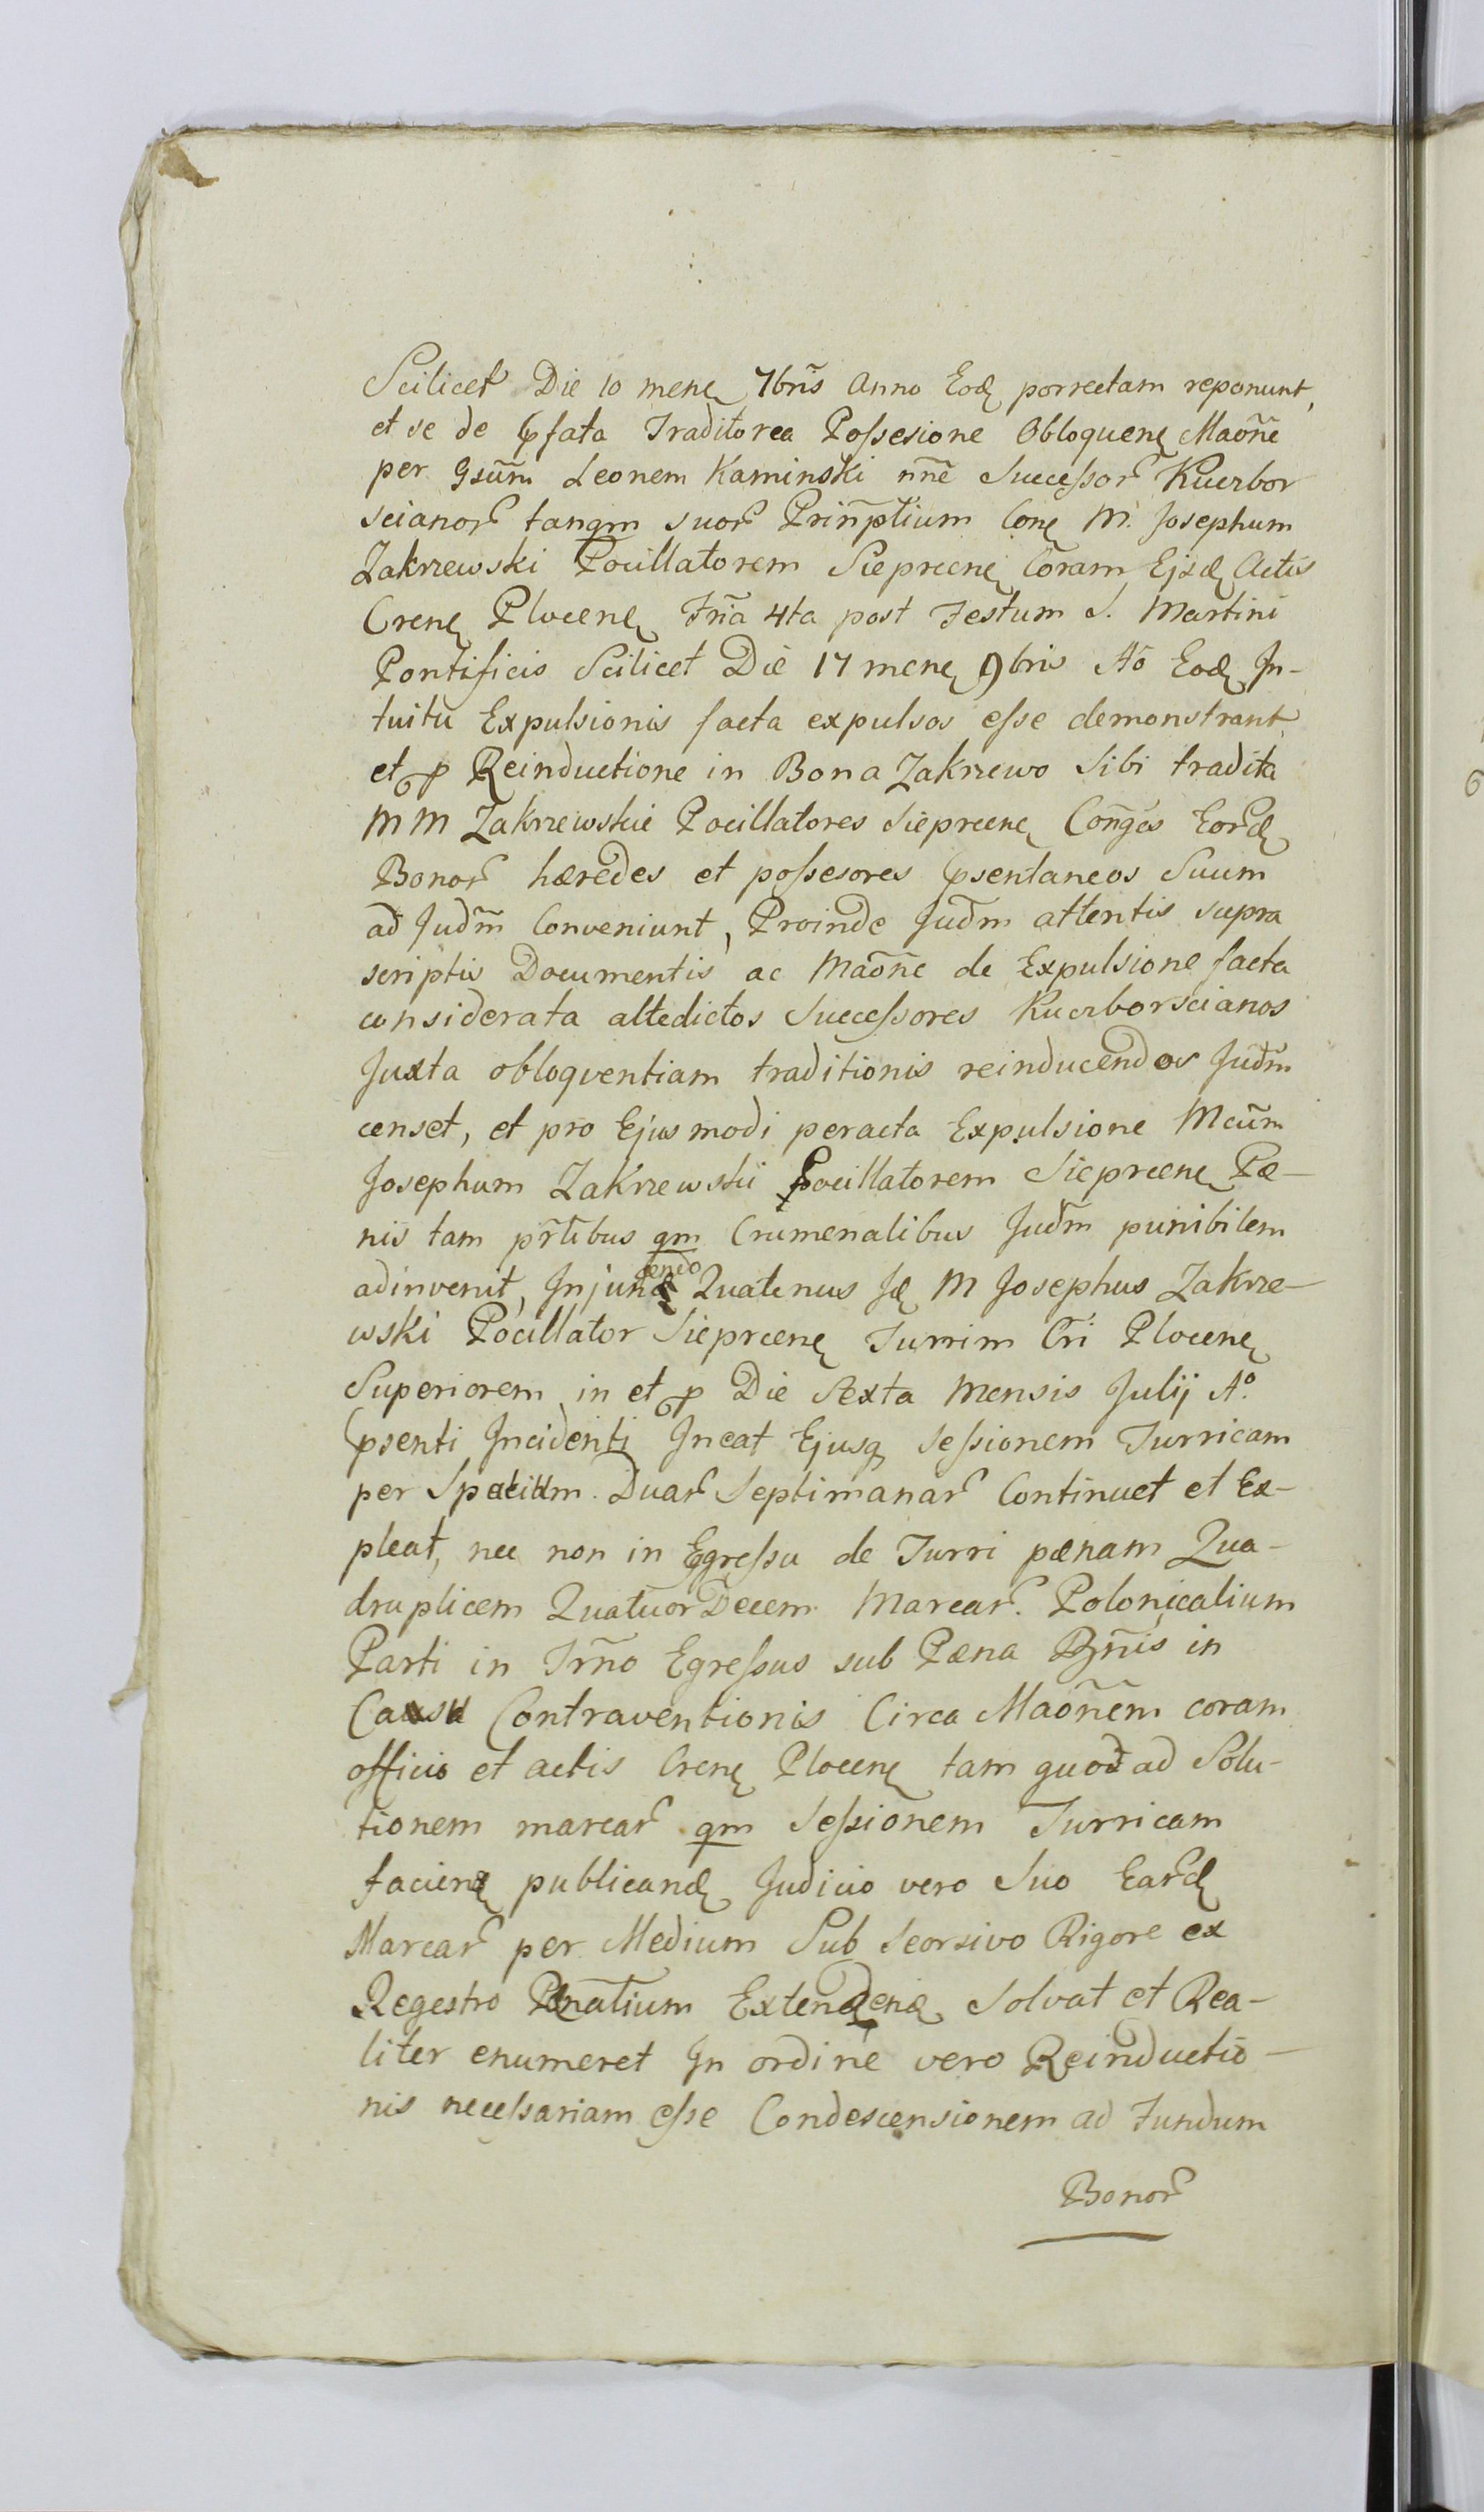 Scilicet Die 10 menę 7brĩs Anno Eodę porrectam reponunt,
et se de Pfata Traditorea Poſsesione Obloquenę Maõne
per Gsũm Leonem Kaminski nñe Succeſsorʳ Kuczbor
scianorʳ tanqm suorʳ Priñptium Conę M. Josephum
Zakrzewski Pocillatorem Sieprcenę Coram Ejsdę Actis
Crenę Plocenę Frĩa 4ta post Festum S. Martini
Pontificis Scilicet Die 17 menę 9bris Aõ Eodę In-
tuitu Expulsionis facta expulsos eſse demonstrant,
et p Reinductione in Bona Zakrzewo Sibi tradita
MM Zakrzewskie Pocillatores Sieprcenę Coñges Eorʳdę
Bonorʳ hæredes et poſsesores Psentaneos Suum
ad Judm̃ Conveniunt, Proinde Judm̃ attentis supra
scriptis Documentis ac Maõne de Expulsione facta
considerata altedictos Succeſsores Kuczborscianos
Juxta obloqventiam traditionis reinducendos Judm̃
censet, et pro Ejusmodi peracta Expulsione Mcũm
Josephum Zakrzewski Pocillatorem Sieprcenę Pæ-
nis tam pr̃libus qm Crumenalibus Judm̃ punibilem
adinvenit, Injungendo Quatenus Idę M Josephus Zakrze-
wski Pocillator Sieprcenę Turrim Cri Plocenę
Superiorem in et p Die Sexta Mensis Julij Aº.
Psenti Incidenti Ineat Ejusq Seſsionem Turricam
per Spatium Duarʳ Septimanarʳ Continuet et Ex-
pleat, nec non in Egreſsu de Turri pænam Qua-
druplicem Quatuor Decem Marcarʳ. Polonicalium
Parti in Trñno Egreſsus sub Pæna Bñis in
Casu Contraventionis Circa Maõnem coram
officio et actis Crenę Plocenę tam quod ad Solu-
tionem marcarʳ qm Seſsionem Turricam
facienę publicandę Judicio vero Suo Earʳdę
Marcarʳ per Medium Sub Seorsivo Rigore ex
Regestro Pænalium Extendendę Solvat et Rea-
liter enumeret In ordine vero Reinductio-
nis neceſsariam eſse Condescensionem ad Fundum
Bonorʳ